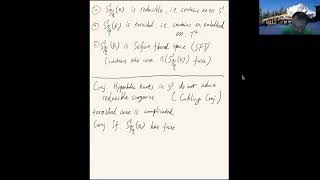 ① S³p/q(K) is reducible, i.e. contains an ess. S²
② S³p/q(K) is toroidal, i.e. contains an embedded ess. T²
③ S³p/q(K) is Seifert fibred space (SFS)
Conj. Hyperbolic knots in S³ do not admit
reducible surgeries. (Cabling Conj)
toroidal case is complicated.
Conj If S³p/q(K) has